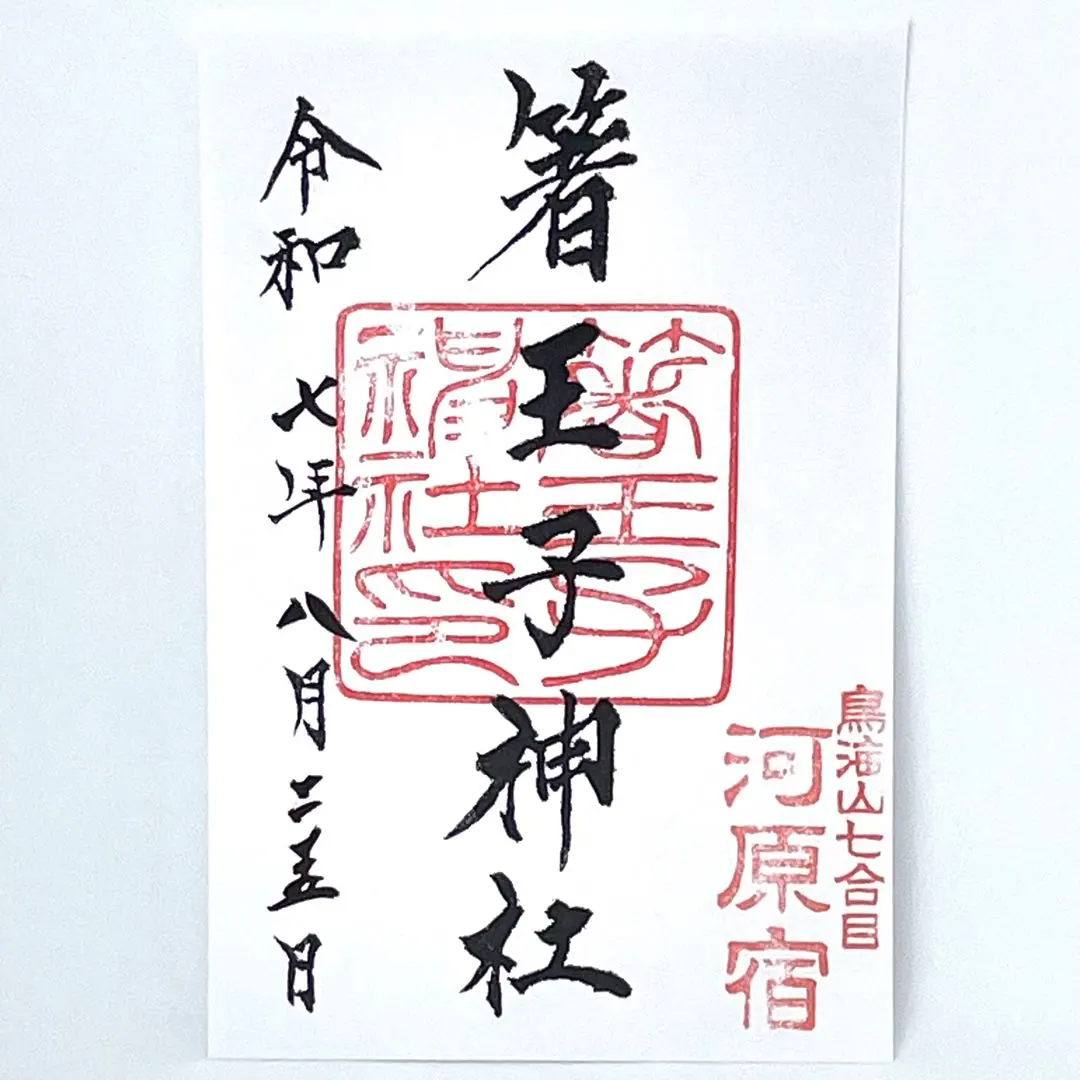 鳥海山七合目
河原宿
箸王子神社
箸王子
神社印
令和七年八月二五日